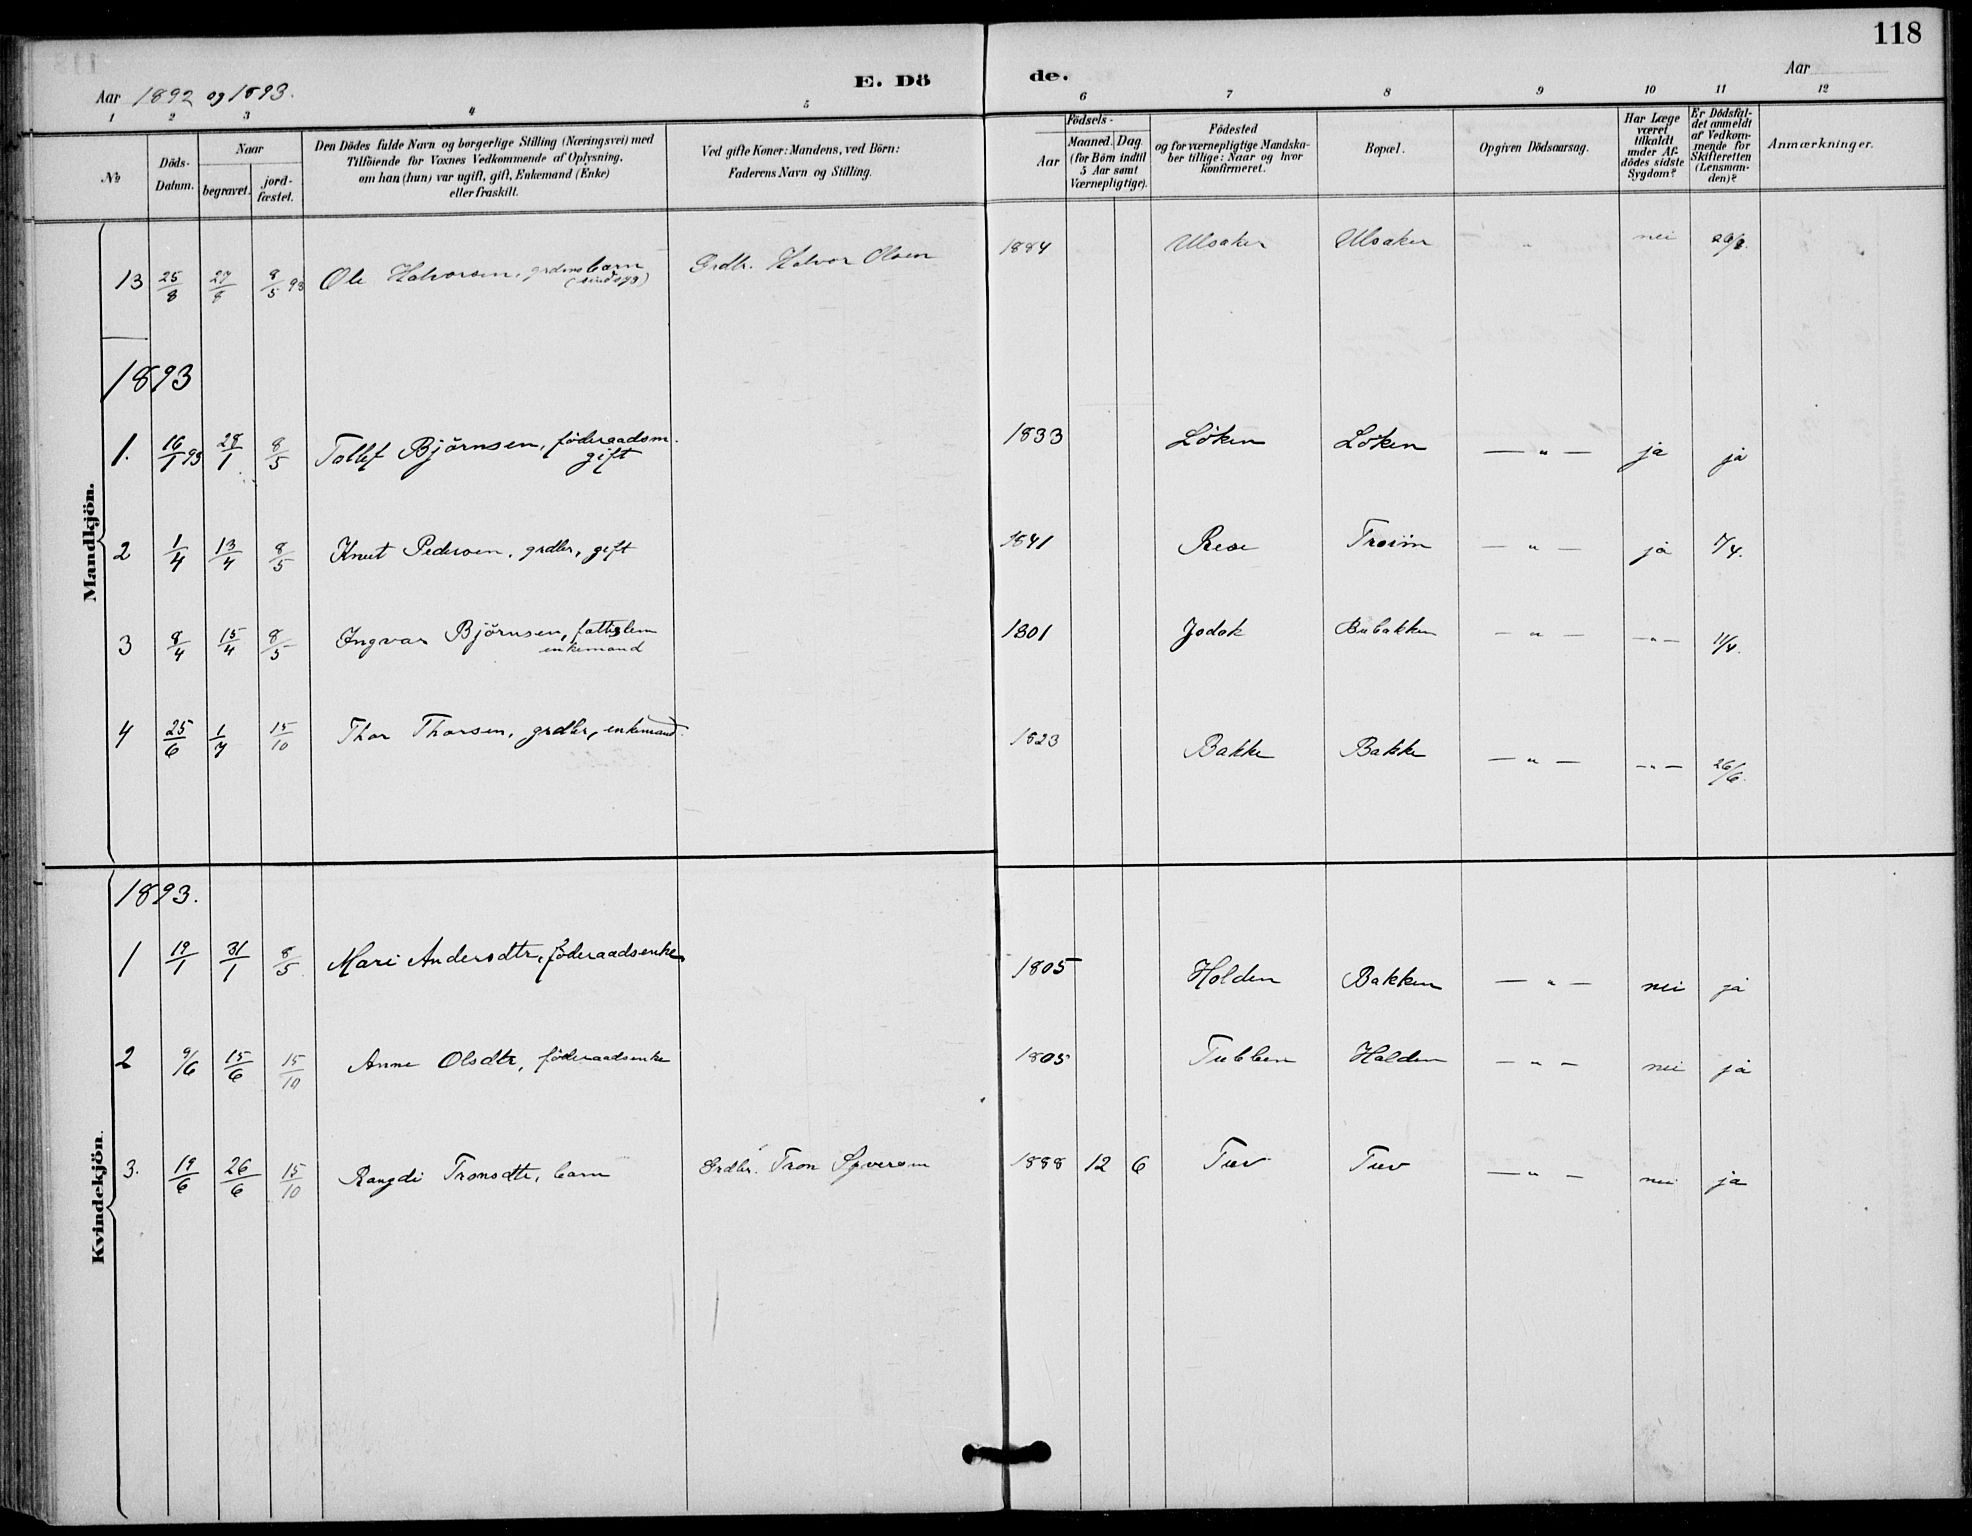 118
Aar 1892 og 1893.
E. Dö de.
Aar
1 2 3 4 5 6 7 8 9 10 11 12
№
Döds-
Datum.
Naar
begravet.
jord-
fæstet.
Den Dödes fulde Navn og borgerlige Stilling (Næringsvei) med
Tilföiende for Voxnes Vedkommende af Oplysning,
om han (hun) var ugift, gift, Enkemand (Enke)
eller fraskilt.
Ved gifte Koner: Mandens, ved Börn:
Faderens Navn og Stilling.
Födsels-
Aar
Maaned. Dag.
(for Börn indtil
5 Aar samt
Værnepligtige).
Födested
og for værnepligtige Mandska-
ber tillige: Naar og hvor
konfirmeret.
Bopæl.
Opgiven Dödsaarsag.
Har Læge
været
tilkaldt
under Af-
dödes sidste
Sygdom?
Er Dödsfal-
det anmeldt
af Vedkom-
mende for
Skifteretten
(Lensman-
den)?
Anmærkninger.
Mandkjön.
13 25/8 27/8 8/5 93 Ole Halvorsen, grdmsbarn Grdbr. Halvor Olsen 1884 Ulsaker Ulsaker " nei
1893
1. 16/1 93 28/1 8/5 Tollef Björnsen, föderaadsm. 1833 Löken Löken — " — ja ja
gift
2 1/4 13/4 8/5 Knut Pedersen, grdbr, gift 1841 Rese Troim — " — ja 7/4.
3 8/4 15/4 8/5 Ingvar Björnsen, fattiglem 1801 Jodok Bubakken — " — — " — 11/4.
enkemand
4 25/6 1/7 15/10 Thor Thorsen, grdbr, enkemand 1823 Bakke Bakke — " — — " — 26/6.
Kvindekjön.
1893.
1 19/1 31/1 8/5 Mari Andersdtr, föderaadsenke 1805 Holden Bakken — " — nei ja
2 9/6 15/6 15/10 Anne Olsdtr, föderaadsenke 1805 Tubben Holden — " — nei ja
3. 19/6 26/6 15/10 Rangdi Tronsdtr, barn Grdbr. Tron Syversen 1888 12 6 Tuv Tuv — " — nei ja